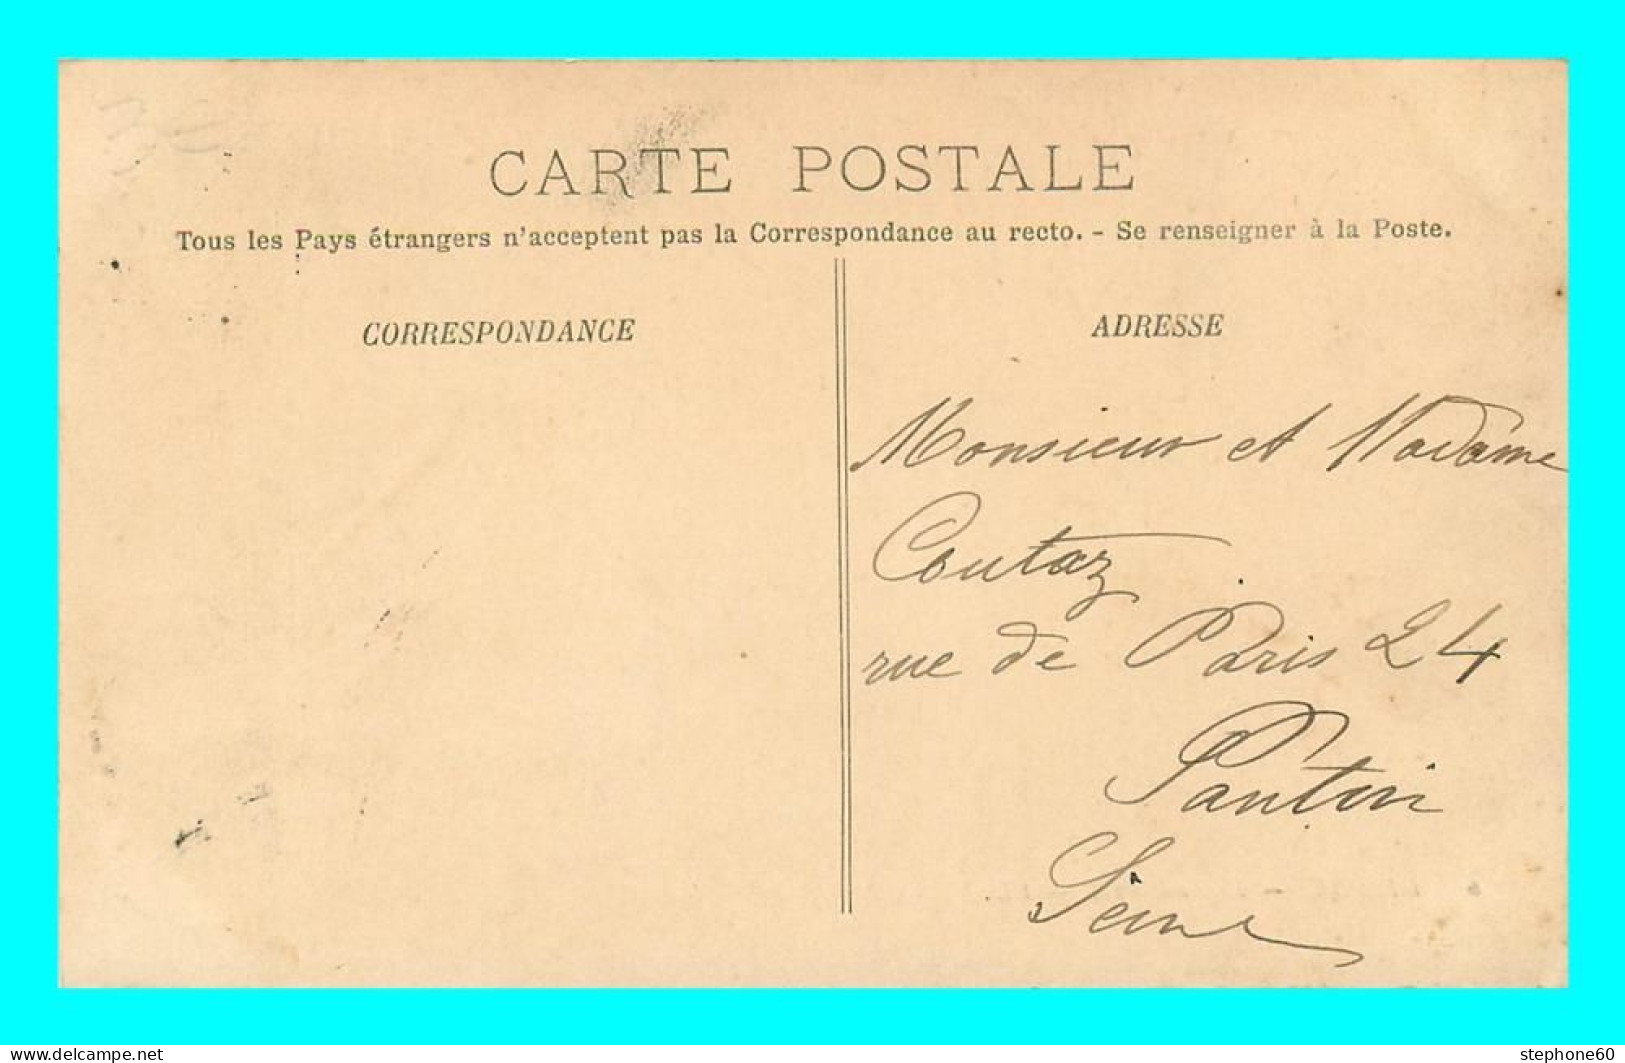 CARTE POSTALE
Tous les Pays étrangers n'acceptent pas la Correspondance au recto. - Se renseigner à la Poste.
CORRESPONDANCE
ADRESSE
Monsieur et Madame
Coutaz
rue de Paris 24
Pantin
Seine
www.delcampe.net
stephone60